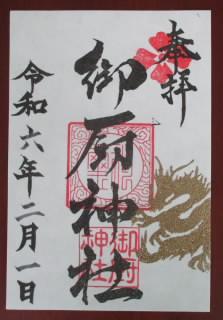 奉拝
御厨神社
令和六年二月一日
御厨
神社